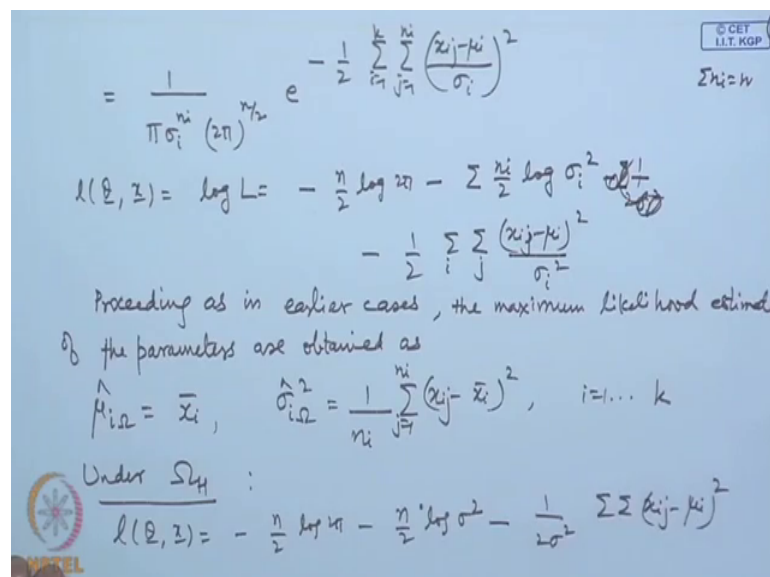 © CET
I.I.T. KGP
= 1 / (π σi^ni (2π)^n/2) e^(- 1/2 Σ_{i=1}^{k} Σ_{j=1}^{ni} ((xij-μi)/σi)^2)
Σni=n
l(θ, x) = log L = - n/2 log 2π - Σ ni/2 log σi^2
- 1/2 Σ_i Σ_j (xij-μi)^2 / σi^2
Proceeding as in earlier cases, the maximum likelihood estimat
of the parameters are obtained as
μ̂iΩ = x̄i, σ̂^2iΩ = 1/ni Σ_{j=1}^{ni} (xij - x̄i)^2, i=1... k
Under ΩH :
l(θ, x) = - n/2 log 2π - n/2 log σ^2 - 1/2σ^2 ΣΣ (xij-μi)^2
NPTEL